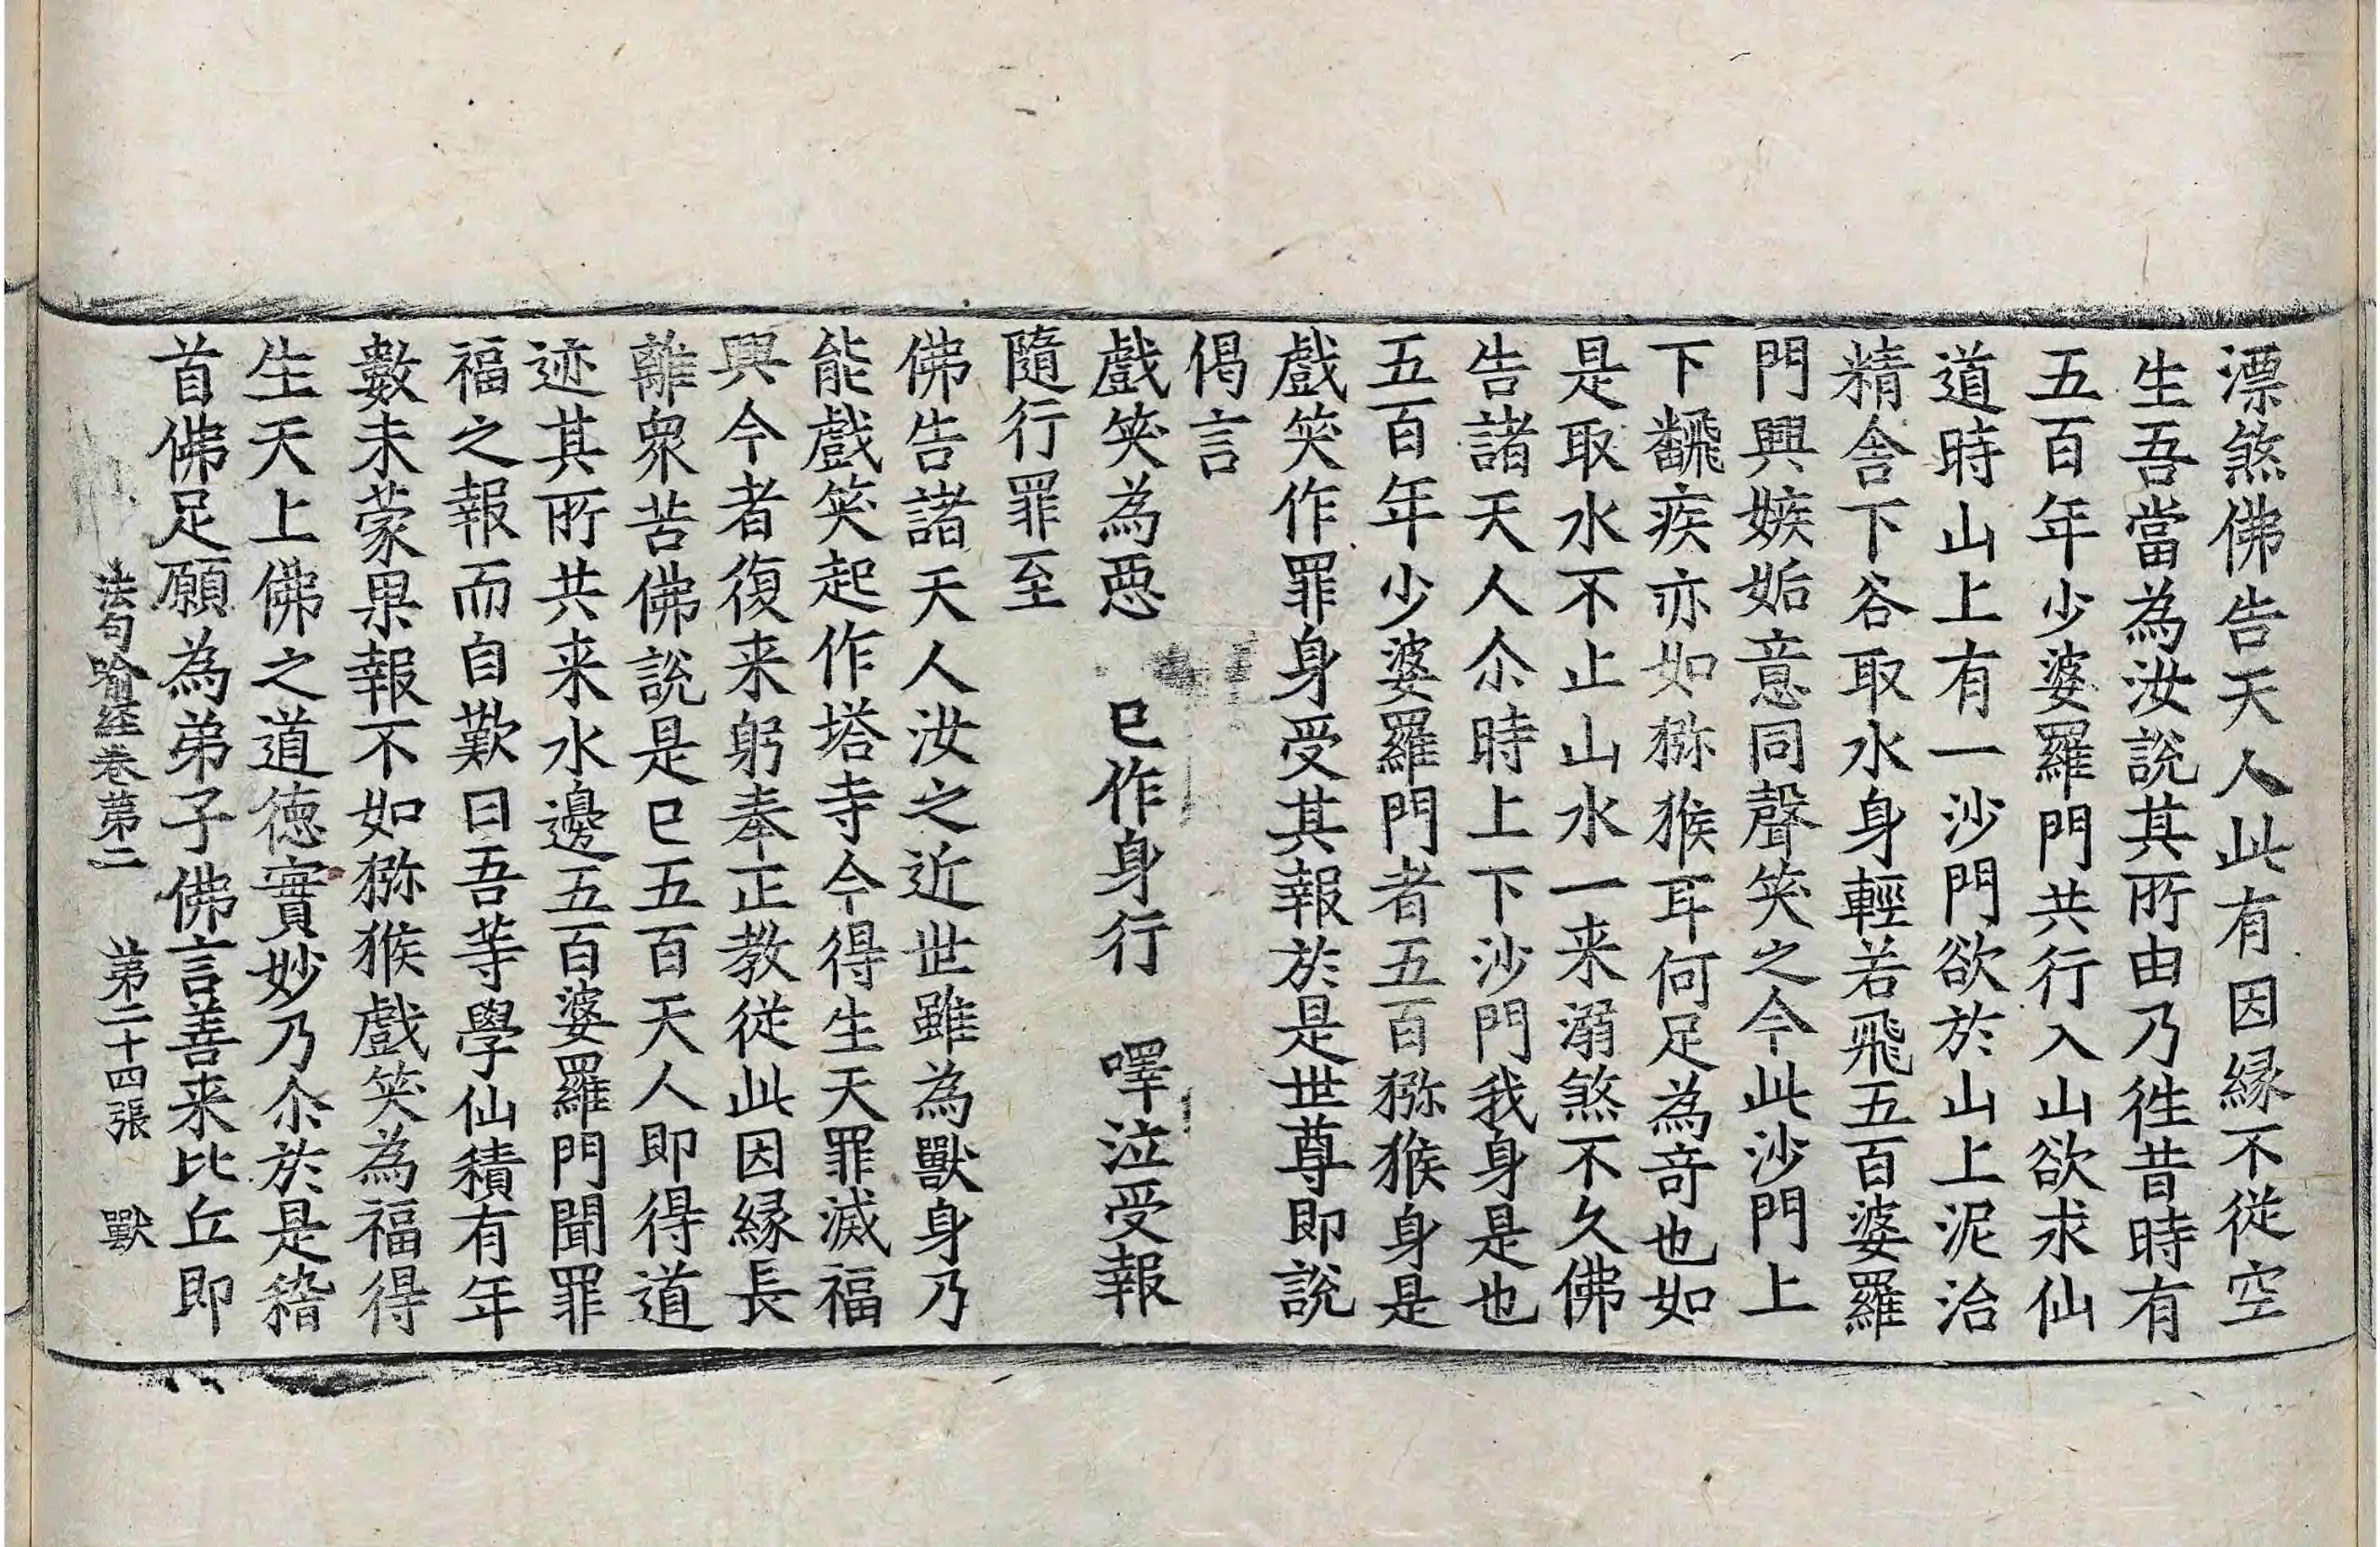 漂煞佛告天人此有因縁不從空
生吾當為汝說其所由乃徃昔時有
五百年少婆羅門共行入山欲求仙
道時山上有一沙門欲於山上泥治
精舍下谷取水身輕若飛五百婆羅
門興嫉妬意同聲笑之今此沙門上
下飜疾亦如獼猴耳何足為竒也如
是取水不止山水一来溺煞不久佛
告諸天人尒時上下沙門我身是也
五百年少婆羅門者五百獼猴身是
戲笑作罪身受其報於是世尊即說
偈言
戲笑為惡　已作身行　嘷泣受報
隨行罪至
佛告諸天人汝之近世雖為獸身乃
能戲笑起作塔寺今得生天罪滅福
興今者復来躬奉正教從此因縁長
離衆苦佛說是已五百天人即得道
迹其所共来水邊五百婆羅門聞罪
福之報而自歎曰吾等學仙積有年
數未蒙果報不如獼猴戲笑為福得
生天上佛之道徳實妙乃尒於是稽
首佛足願為弟子佛言善来比丘即
法句喻経卷第二　第二十四張　獸